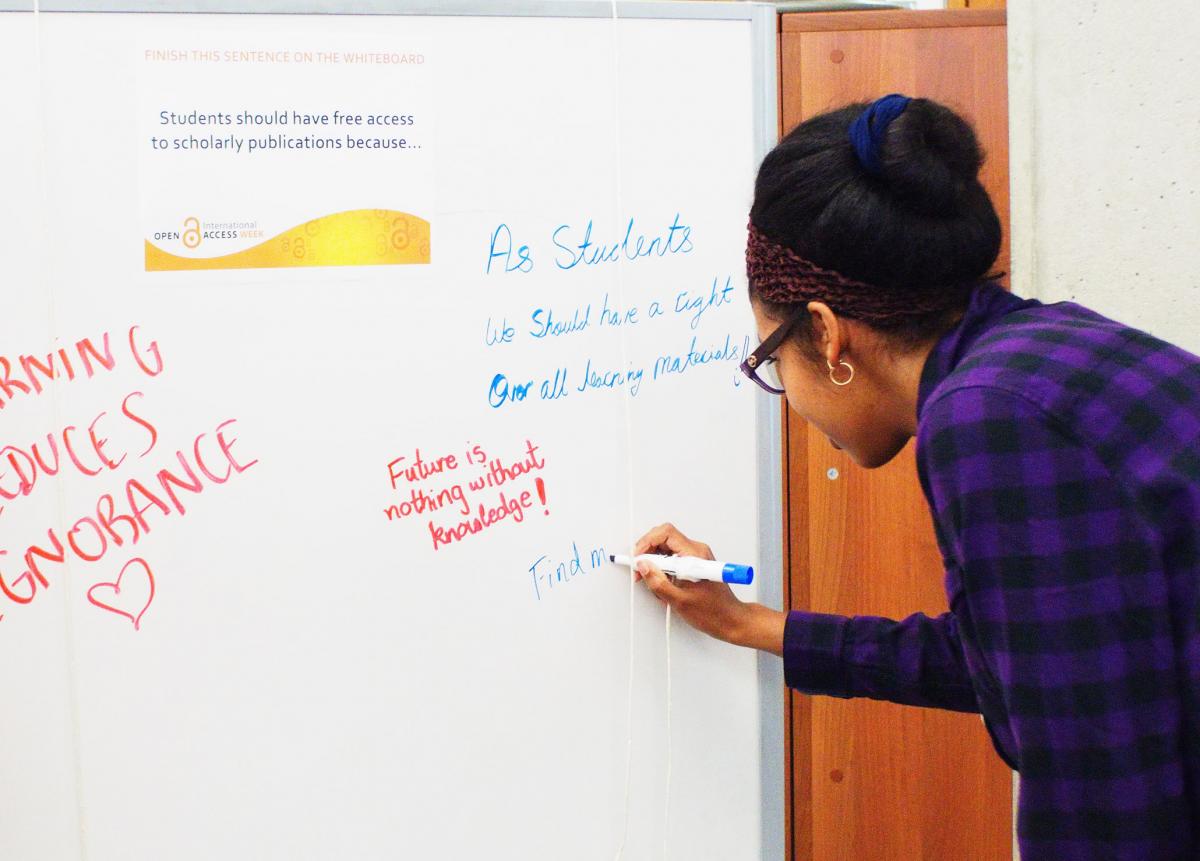 FINISH THIS SENTENCE ON THE WHITEBOARD
Students should have free access
to scholarly publications because...
OPEN International
ACCESS WEEK
As Students
We Should have a right
Over all learning materials!!
RNING
EDUCES
GNORANCE
Future is
nothing without
knowledge!
Find m